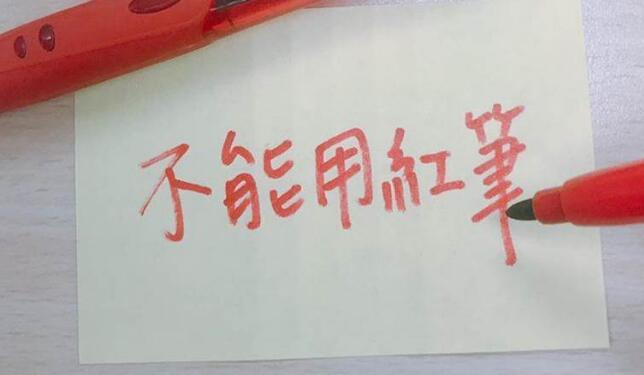 不能用紅筆